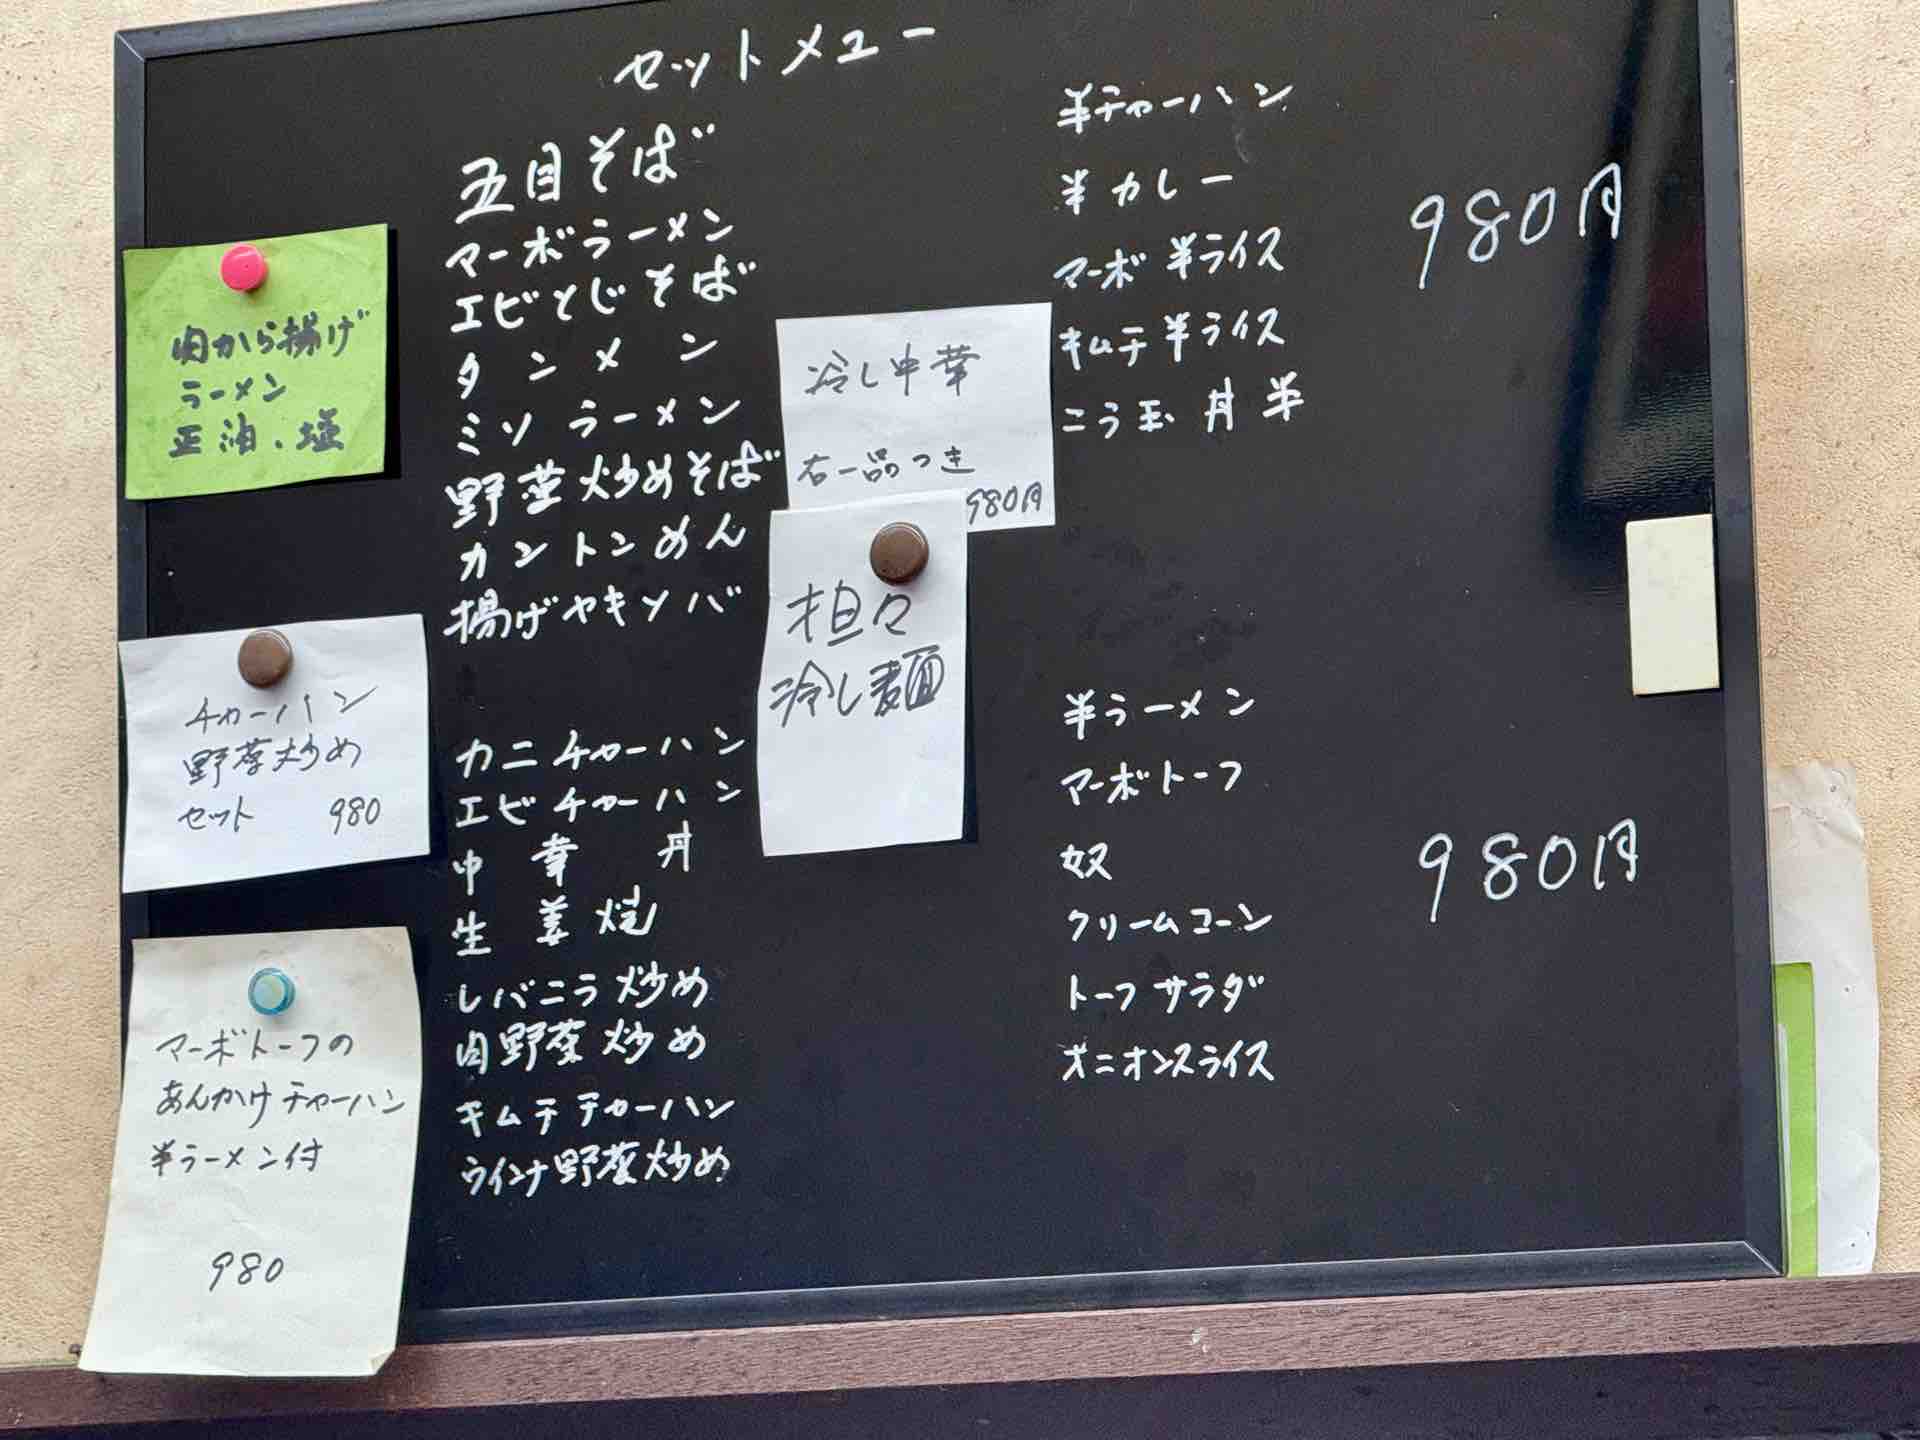 セットメュー
五目そば
マーボラーメン
エビとじそば
タンメン
ミソラーメン
野菜炒めそば
カントンめん
揚げヤキソバ
半チャーハン
半カレー
マーボ半ライス
キムチ半ライス
こう玉丼半
980円
冷し中華
右一品つき
980円
担々
冷し麺
肉から揚げ
ラーメン
正油、塩
チャーハン
野菜炒め
セット 980
マーボトーフの
あんかけチャーハン
半ラーメン付
980
カニチャーハン
エビチャーハン
中華丼
生姜焼
レバニラ炒め
肉野菜炒め
キムチチャーハン
ウインナ野菜炒め
半ラーメン
マーボトーフ
奴
クリームコーン
トーフサラダ
オニオンスライス
980円